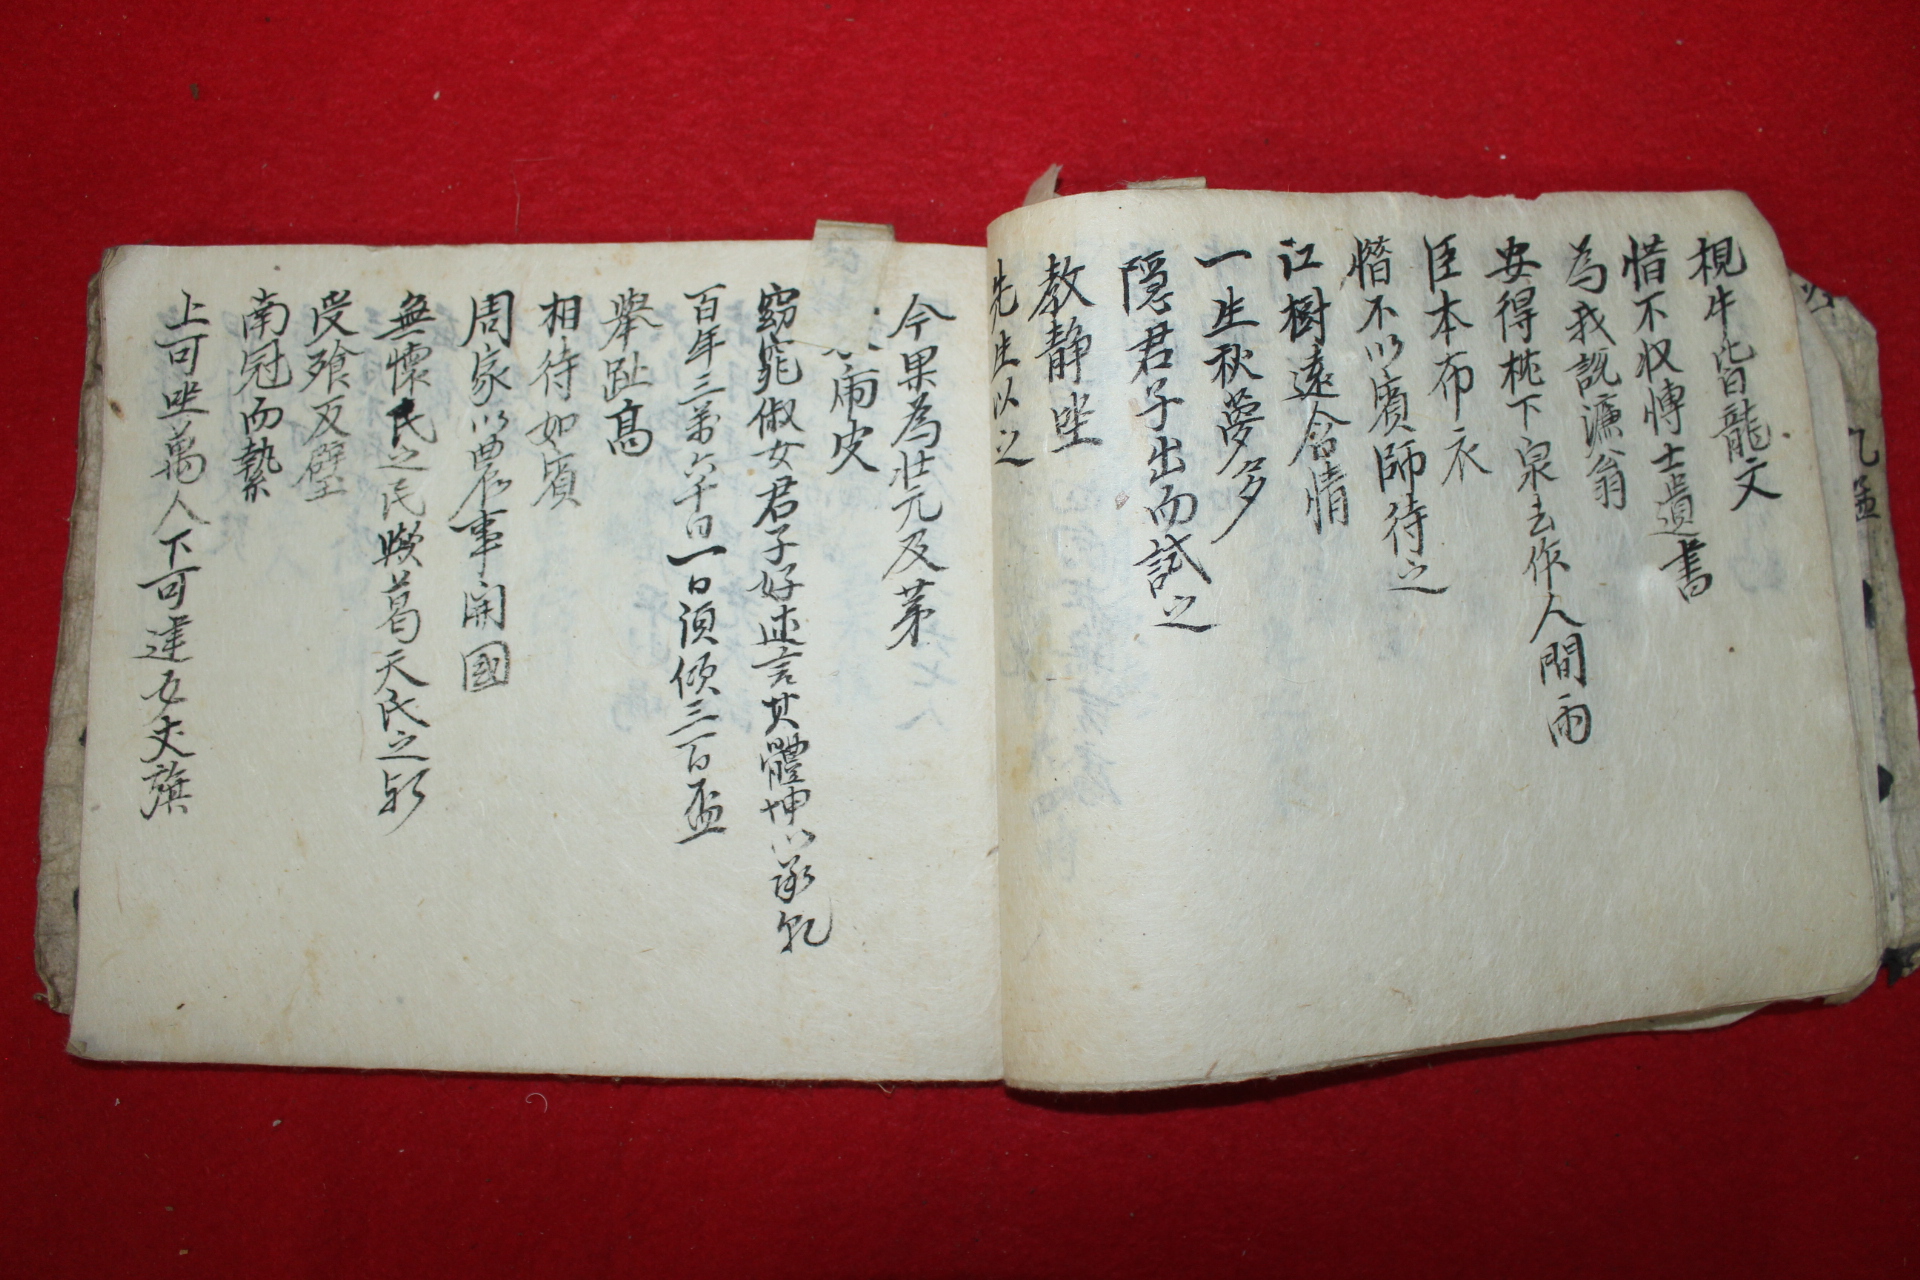 視牛皆龍文
惜不收博士遺書
為我説濂翁
安得枕下泉去作人間雨
臣本布衣
惜不以賓師待之
江樹遠含情
一生秋夢多
隱君子出而試之
教静坐
先生以之
今果為壮元及茅
雨皮
窈窕俶女君子好逑言其體坤以承乾
百年三萬六千日一日須傾三百盃
擧趾高
相待如賓
周家以農事開國
無懷氏之民歟葛天氏之
受飱反璧
南冠而縶
上可坐萬人下可建五丈旗